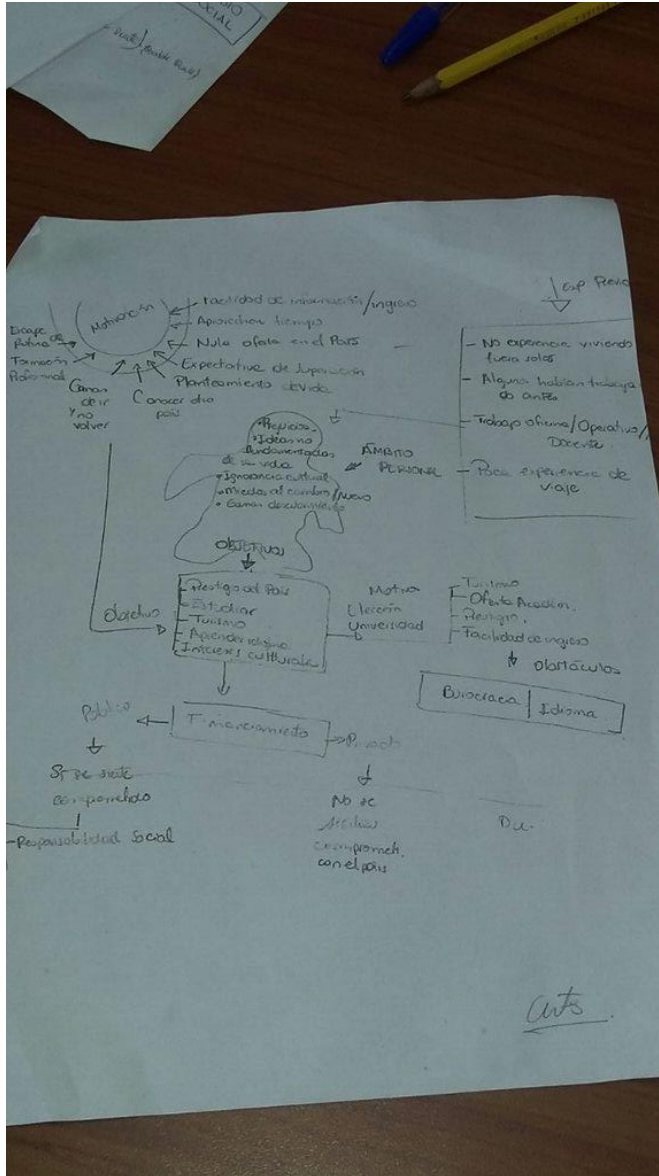 CIAL
Motivación
Facilidad de información/ingreso
Aprovechar tiempo
Nula oferta en el País
Expectativa de Superación
Planteamiento de vida
Conocer otro
país
Ganas
de ir
Y no
volver
Escape
Rutina de
Formación
Profesional
Exp Previa
- No experiencia viviendo
fuera solos
- Alguna habían trabaja
do antes
- Trabajo oficina/Operativo/
Docente
- Poca experiencia de
viaje
• Prejuicios
• Ideas no
fundamentadas
de su vida
• Ignorancia cultural
• Miedos al cambio/Nuevo
• Ganas
ÁMBITO
PERSONAL
OBJETIVOS
Objetivo
- Prestigio del País
- Estudiar
- Turismo
- Aprender idioma
Intereses culturales
Motivo
Elección
Universidad
- Turismo
- Oferta Académ.
- Prestigio.
- Facilidad de ingreso
Obstáculos
Burocracia | Idioma
Financiamiento
Público
Privado
Si se siente
comprometido
- Responsabilidad Social
No se
compromet.
con el país